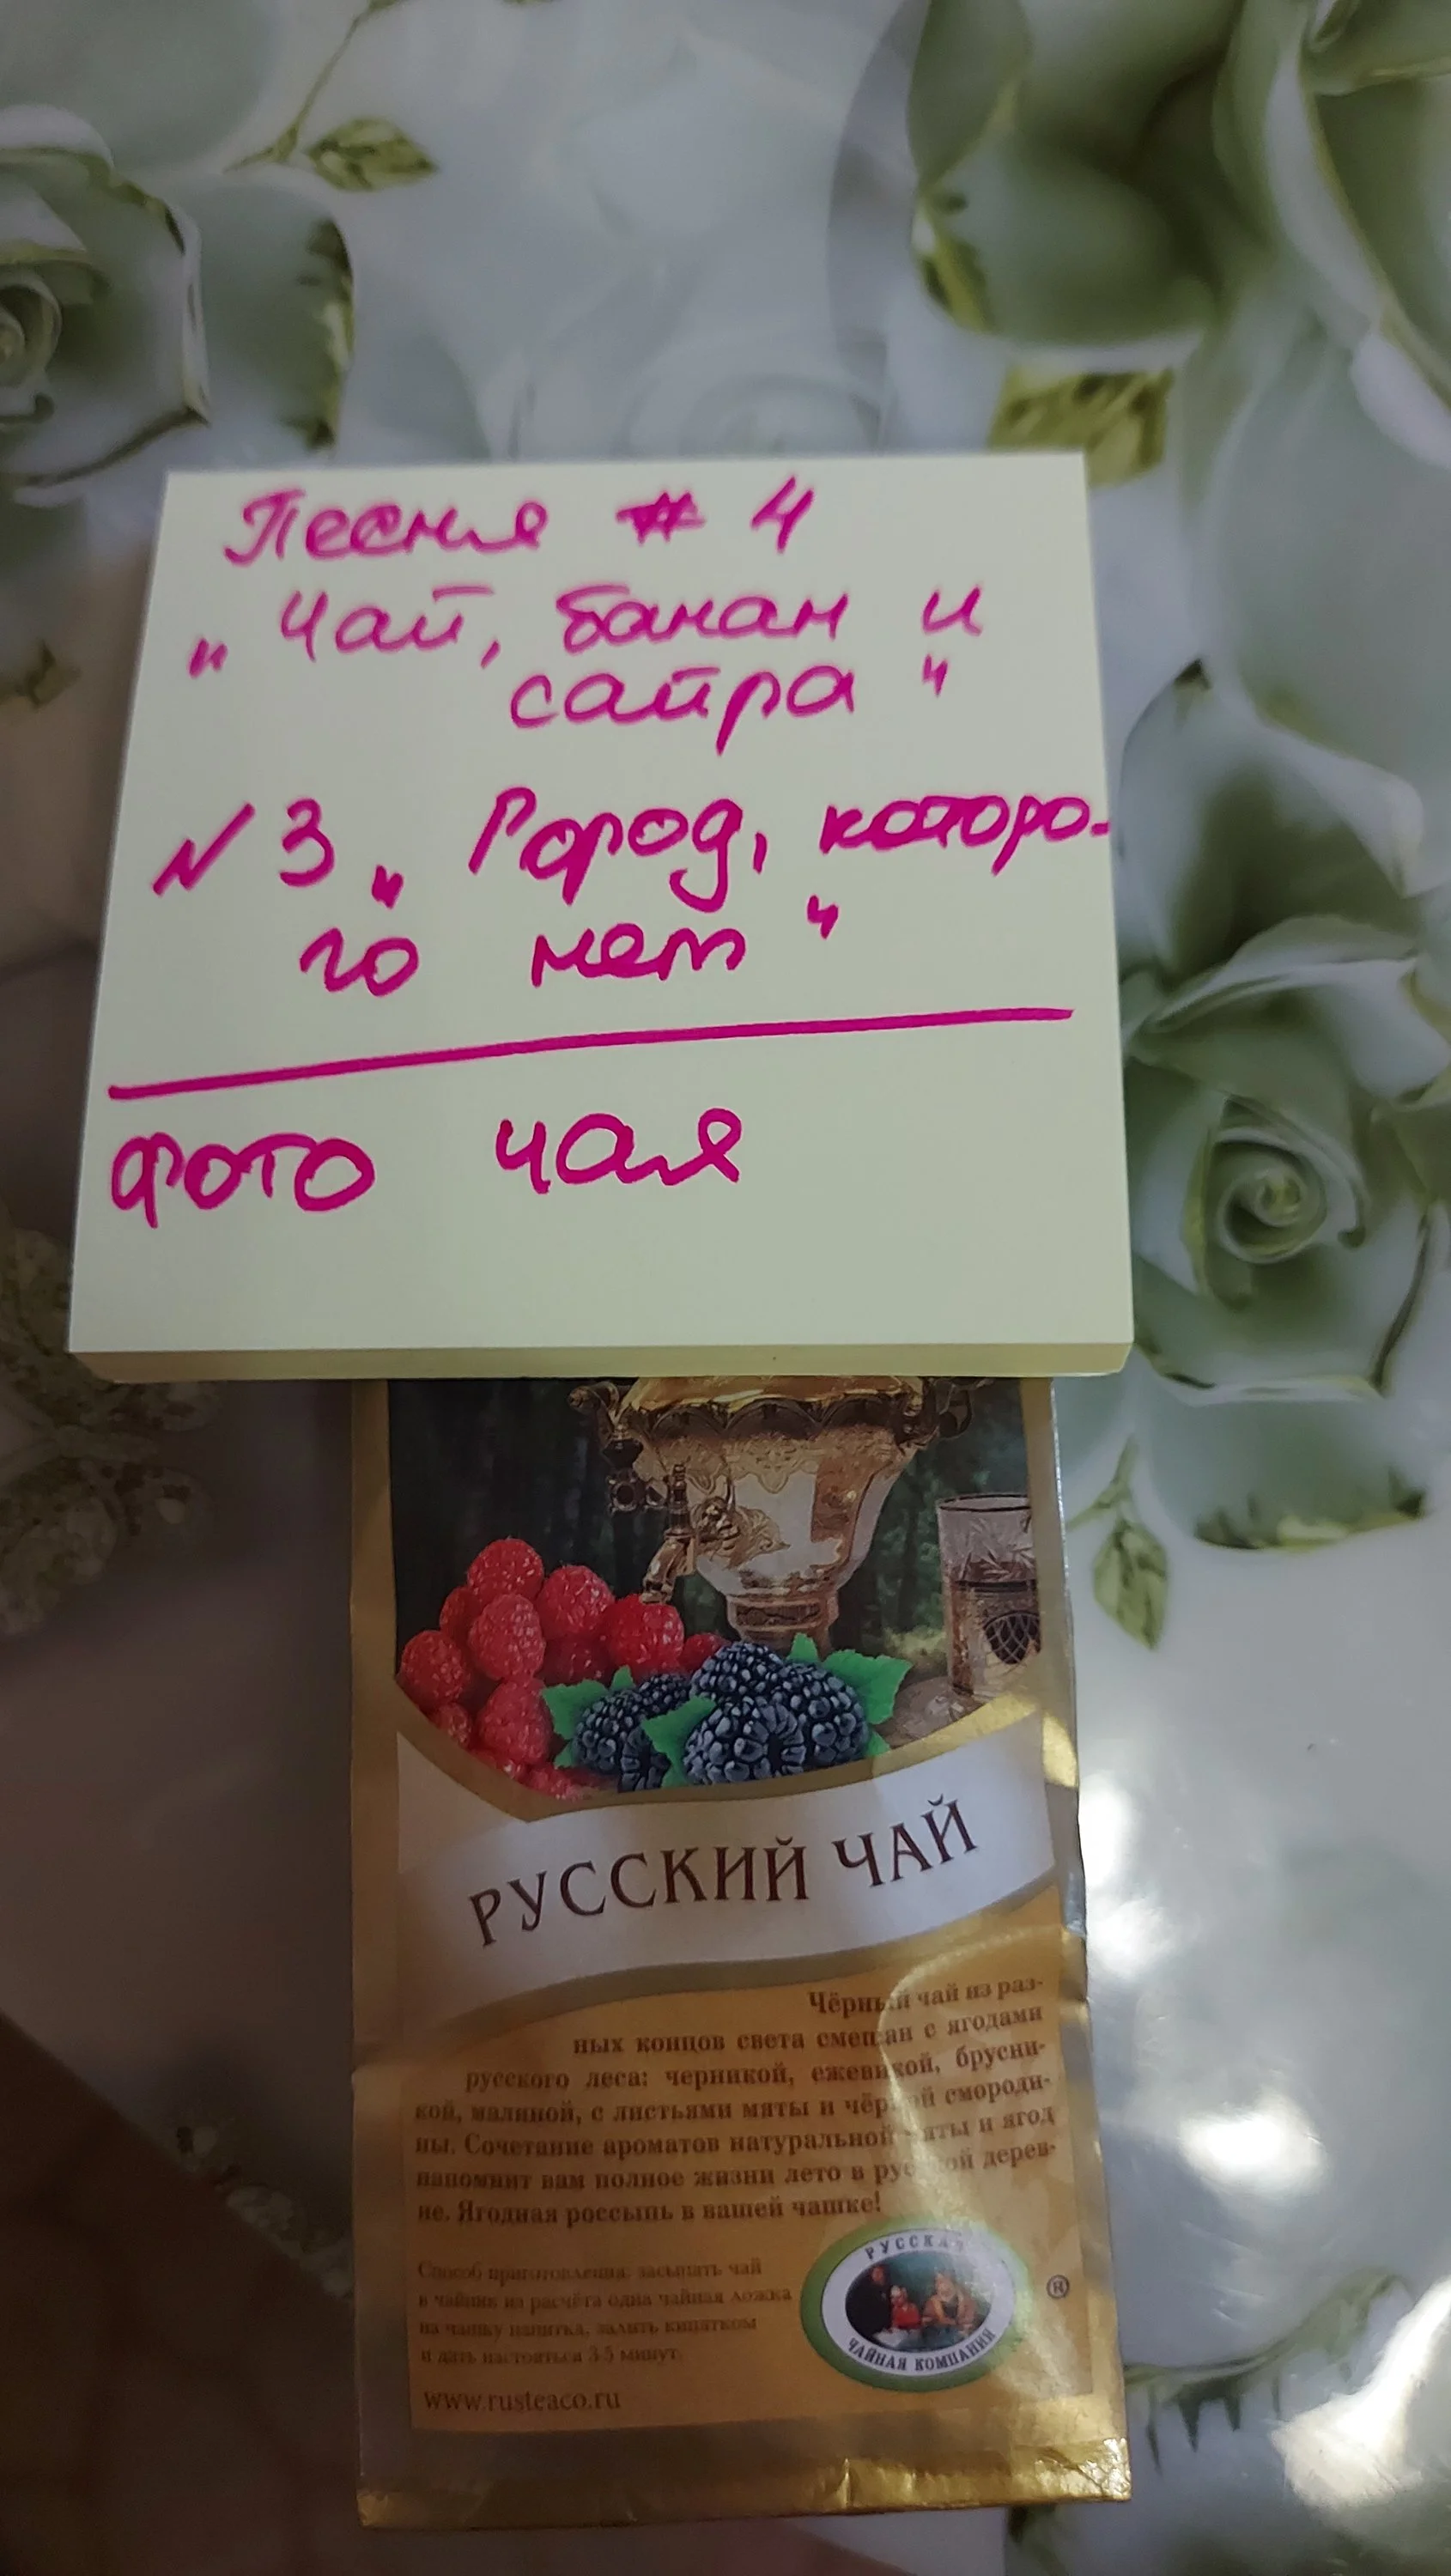 Песня # 4
„Чай, банан и
сайра"
№ 3 „Город, которо-
го нет"
Фото чая
РУССКИЙ ЧАЙ
Чёрный чай из раз-
ных концов света смешан с ягодами
русского леса: черникой, ежевикой, брусни-
кой, малиной, с листьями мяты и чёрной смороди-
ны. Сочетание ароматов натуральной мяты и ягод
напомнит вам полное жизни лето в русской дерев-
не. Ягодная россыпь в вашей чашке!
Способ приготовления: засыпать чай
в чайник из расчёта одна чайная ложка
на чашку напитка, залить кипятком
и дать настояться 3-5 минут.
www.rusteaco.ru
РУССКАЯ
ЧАЙНАЯ КОМПАНИЯ
®